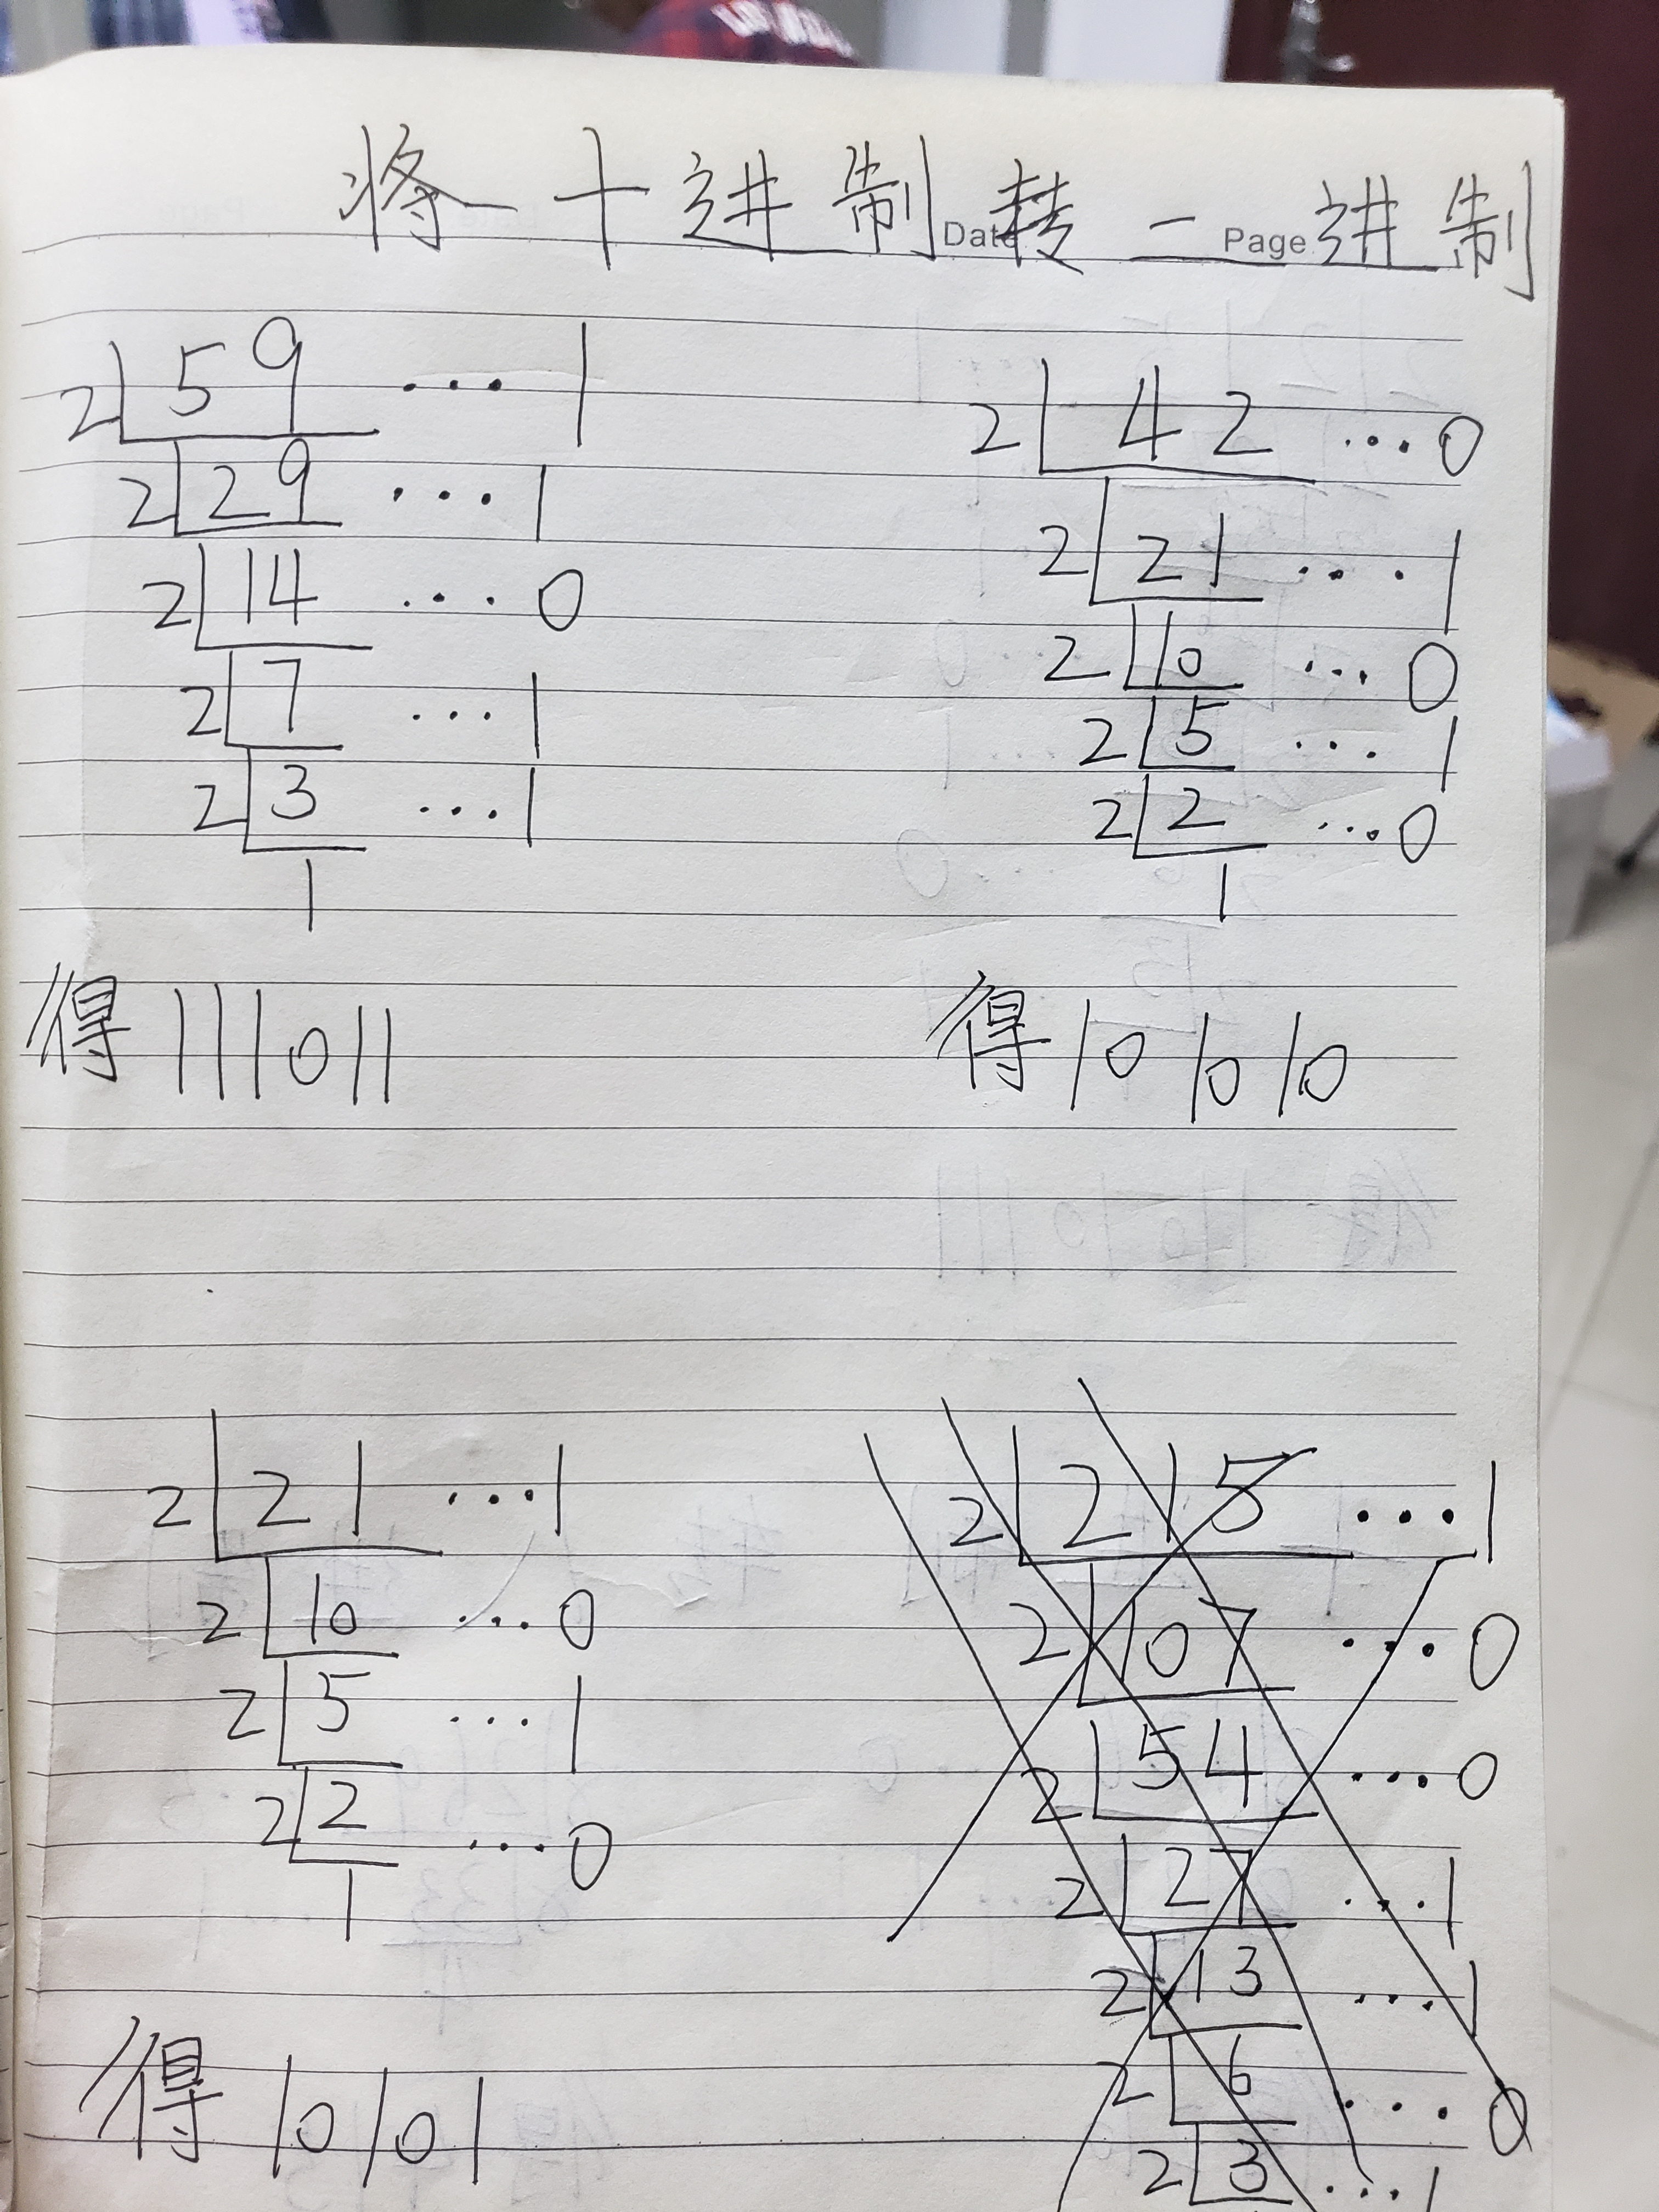 将十进制转二进制
Date Page
2 59 ... 1
2 29 ... 1
2 14 ... 0
2 7 ... 1
2 3 ... 1
1
得 111011
2 42 ... 0
2 21 ... 1
2 10 ... 0
2 5 ... 1
2 2 ... 0
1
得 101010
2 21 ... 1
2 10 ... 0
2 5 ... 1
2 2 ... 0
1
得 10101
2 215 ... 1
2 107 ... 0
2 54 ... 0
2 27 ... 1
2 13 ... 1
2 6 ... 0
2 3 ... 1